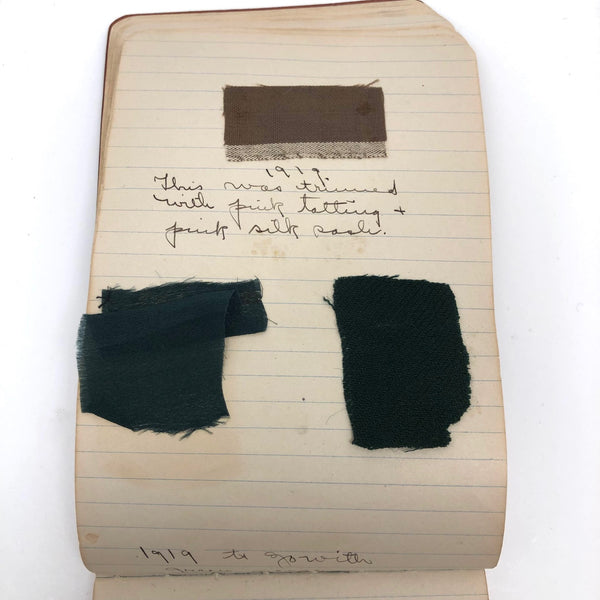 1919.
This was trimmed
with pink tatting +
pink silk sash.
1919 to go with